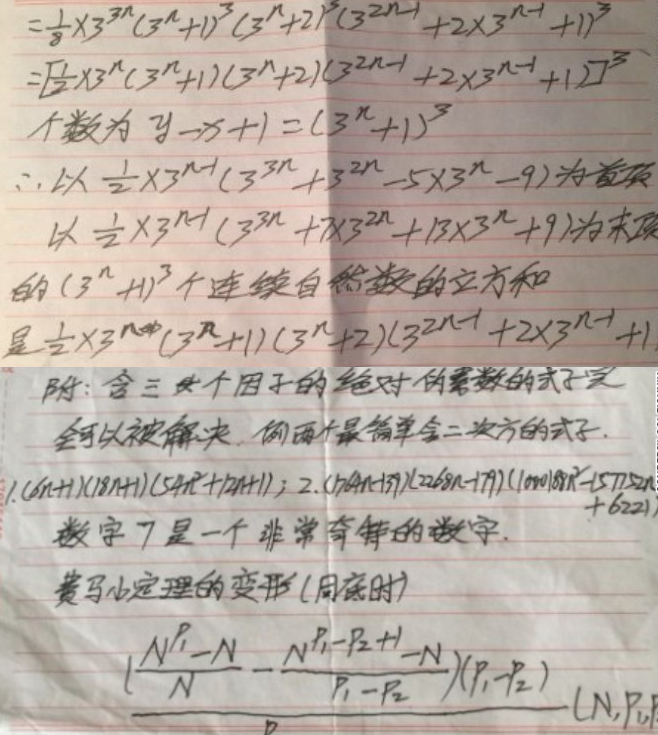 =1/8×3^{3n}(3^n+1)^3(3^n+2)^3(3^{2n-1}+2×3^{n-1}+1)^3
=[1/2×3^n(3^n+1)(3^n+2)(3^{2n-1}+2×3^{n-1}+1)]^3
个数为 y-x+1=(3^n+1)^3
∴以 1/2×3^{n-1}(3^{3n}+3^{2n}-5×3^n-9)为首项
以 1/2×3^{n-1}(3^{3n}+7×3^{2n}+13×3^n+9)为末项
的(3^n+1)^3个连续自然数的立方和
是1/2×3^n(3^n+1)(3^n+2)(3^{2n-1}+2×3^{n-1}+1
附:含三个因子的绝对伪素数的式子完
全可以被解决.例两个最简单含二次方的式子.
1.(6n+1)(18n+1)(54n²+12n+1); 2.
+6221)
数字7是一个非常奇特的数字.
费马小定理的变形(同底时)
((N^{P₁}-N)/N - (N^{P₁-P₂+1}-N)/(P₁-P₂))(P₁-P₂)
(N,P₁,P